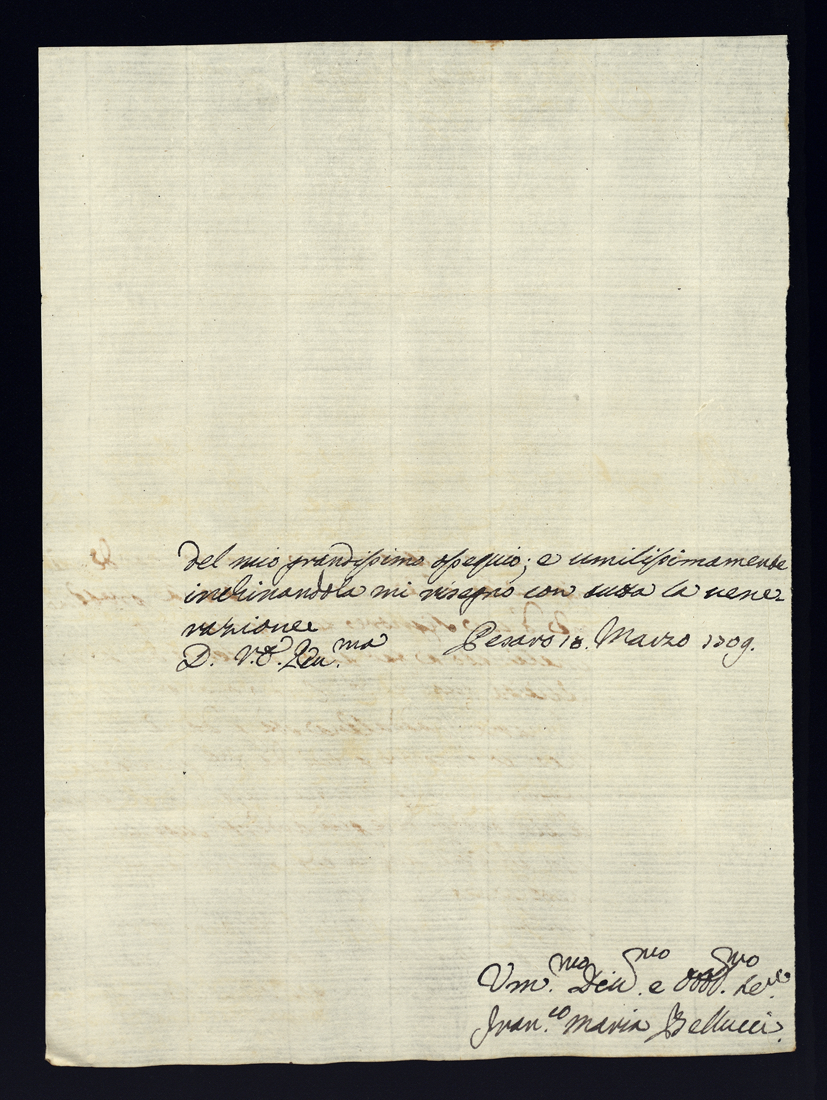 del mio grandissimo ossequio; e umilissimamente
inchinandola mi risegno con tutta la vene-
razione
D. V. S. Ill.ma Pesaro 18. Marzo 1709.
Um.mo Dev.mo e Obb.mo Se.re
Fran.co Maria Bellucci.